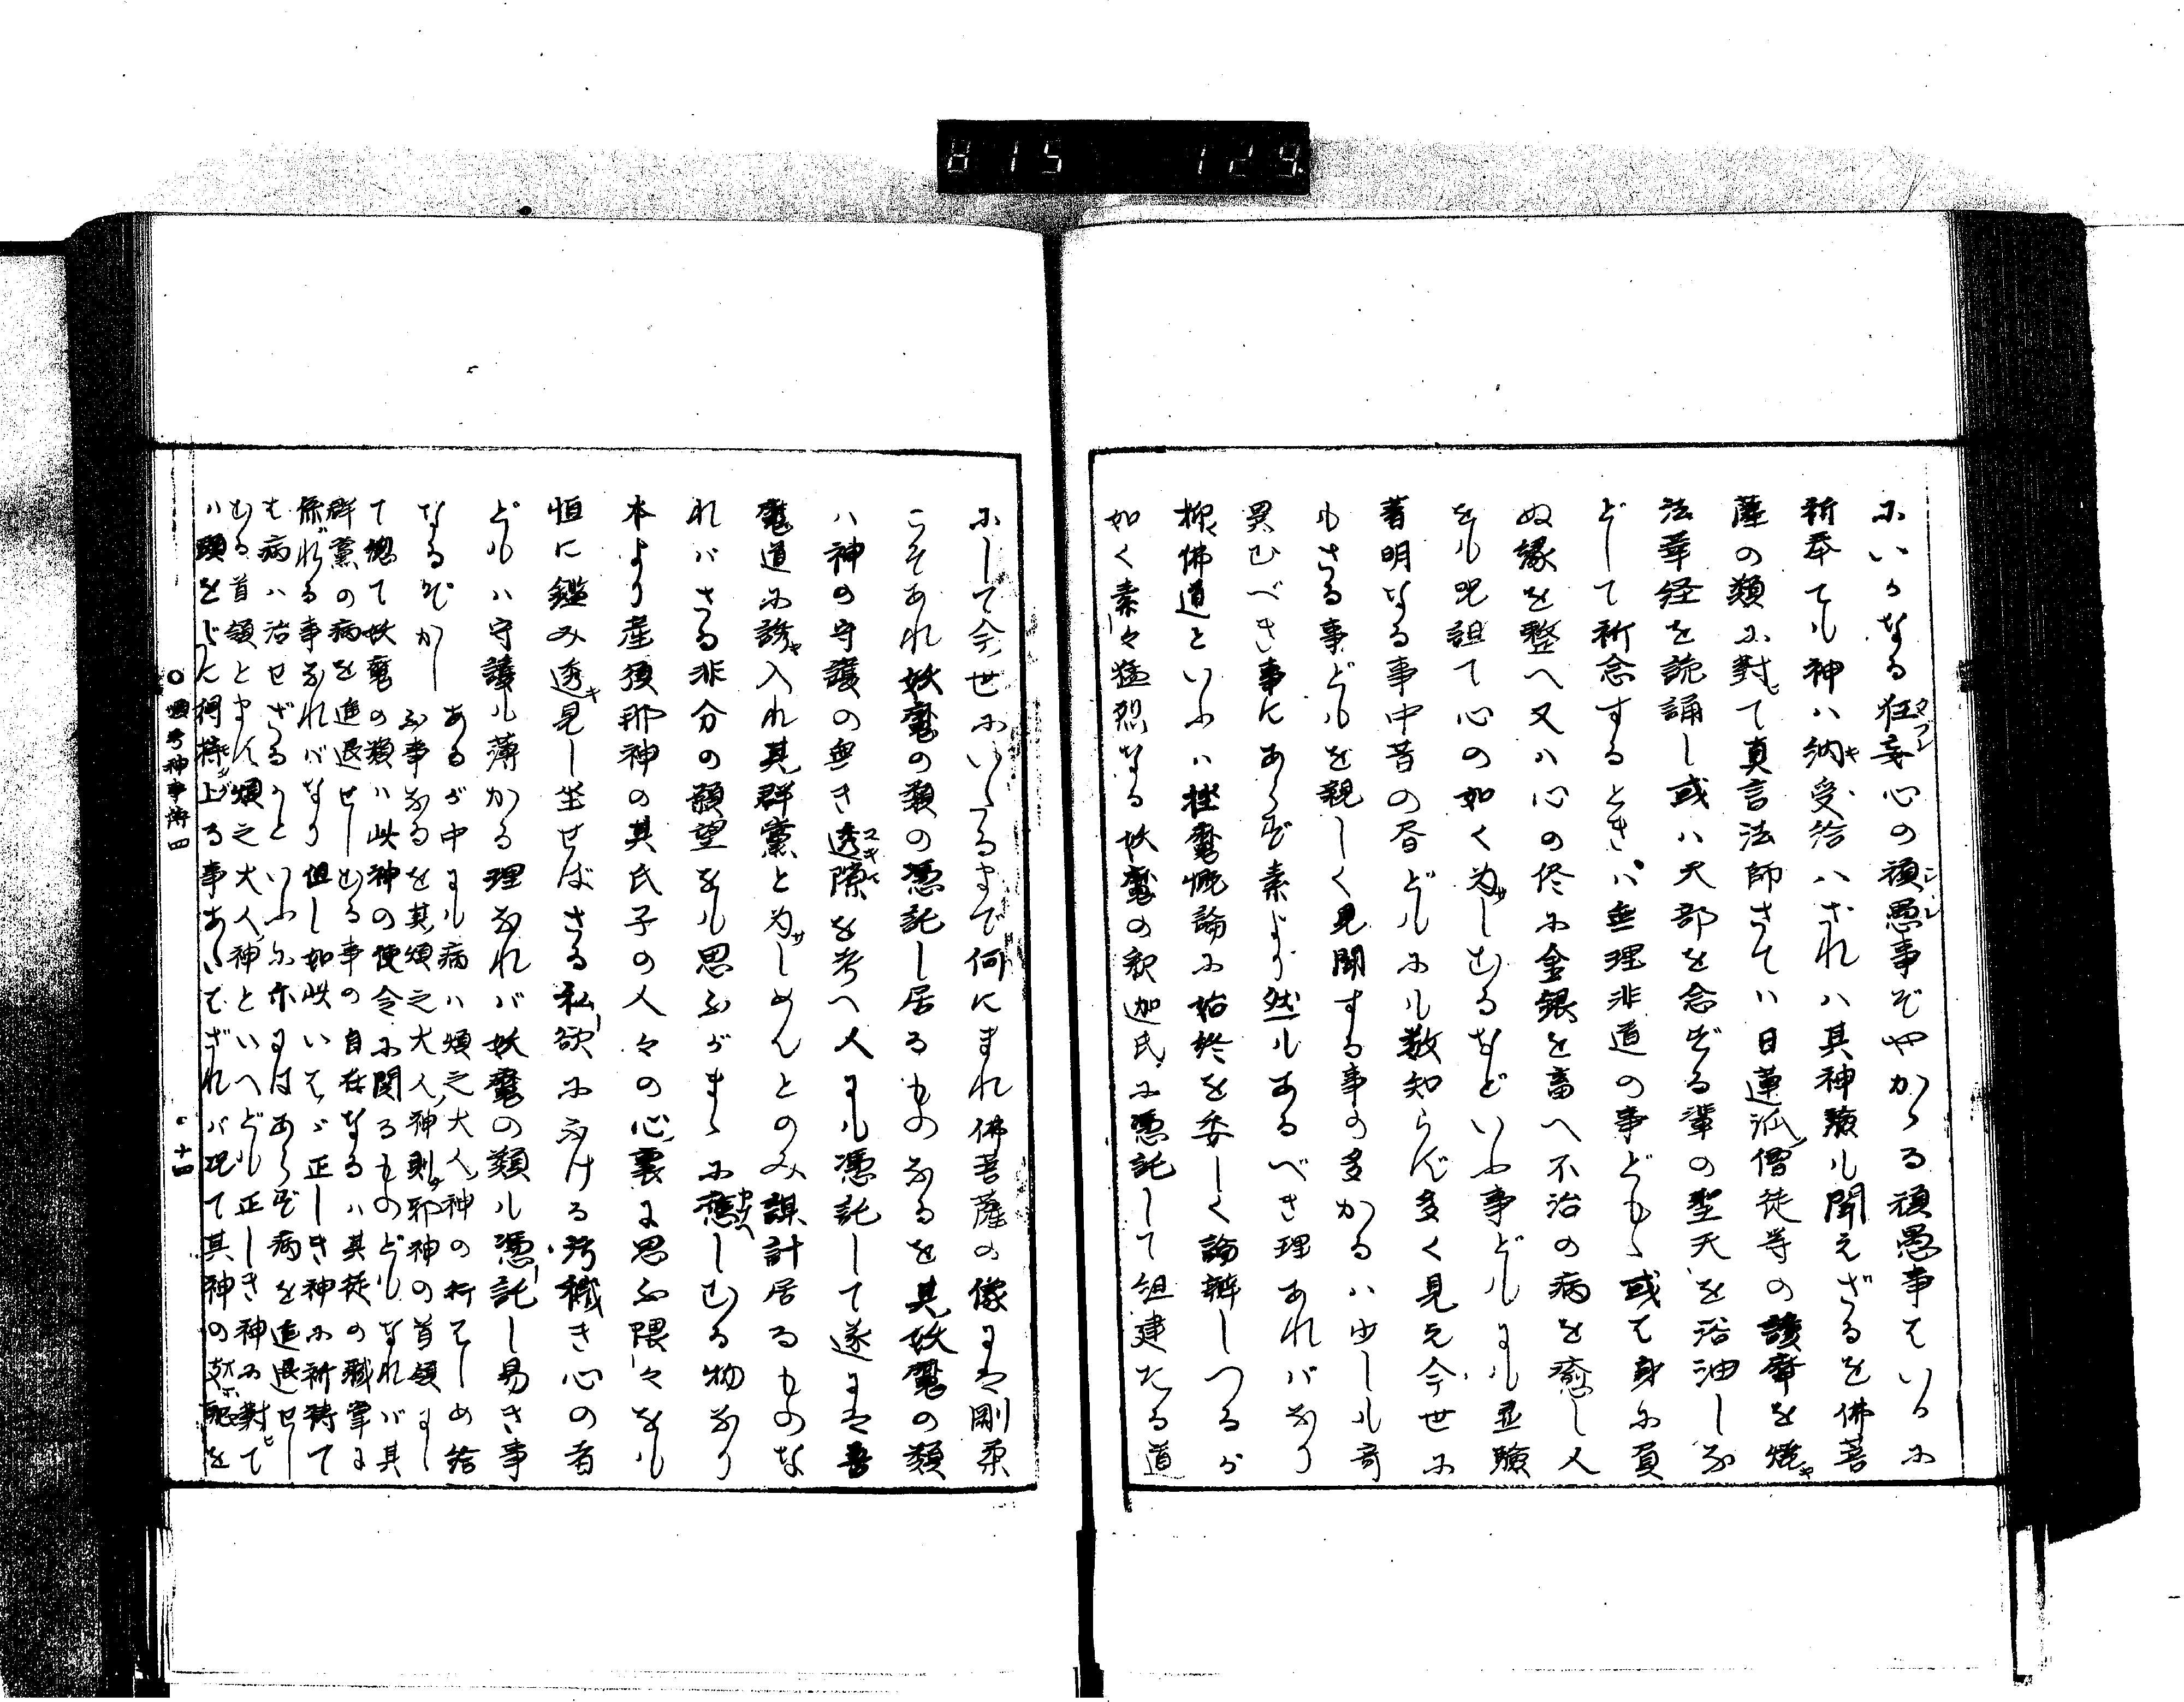 815 129
にいかなる狂妄心の頑愚事ぞやかゝる頑愚事をいかに
祈奉ても神ハ納受給ハざれハ其神験も聞えざるを佛菩
薩の類に對て真言法師さてハ日蓮派僧徒等の護摩を燒
法華経を読誦し或ハ天部を念ずる輩の聖天を浴油しな
どして祈念するときバ無理非道の事ども或を身に負
ぬ縁を整へ又ハ心の侭に金銀を畜へ不治の病を癒し人
をも咒詛て心の如く為しむるなどいふ事どもにも並驗
著明なる事中昔の書どもにも数知らず多く見え今世に
もさる事どもを親しく見聞する事の多かるハ少しも奇
異むべき事にあらず素より然もあるべき理あれバなり
抑佛道といふハ挫魔慨論に始終を委しく論辨しつるが
如く素々猛烈なる妖魔の釈迦氏に憑託して組建たる道
にして今世にいたるまで何にまれ佛菩薩の像には剛柔
こそあれ妖魔の類の憑託し居るものなるを其妖魔の類
ハ神の守護の無き透隙を考へ人にも憑託して遂には吾
魔道に誘入れ其群黨と為しめんとのみ謀計居るものな
れバさる非分の願望をも思ふがまゝに應しむる物なり
本より産須那神の其氏子の人々の心裏に思ふ隈々をも
恒に鑑み透見し坐せばさる私欲にふける汚穢き心の者
どもハ守護も薄かる理なれバ妖魔の類も憑託し易き事
なるぞかし
あるが中にも病ハ煩之大人神の行はしめ給
ふ事なるを其煩之大人神則邪神の首領にし
て總て妖魔の類ハ此神の使令に関るものどもなれバ其
群黨の病を進退せしむる事の自在なるハ其徒の職掌に
係れる事なれバなり但し如此いはゞ正しき神に祈祷て
も病ハ治せざるかといふに亦にはあらず病を進退せし
むる首領とます煩之大人神といへども正しき神に對て
ハ頭をだに擡上る事あたはざれバ况て其神の支配を
○ 顕考神事傳四 十四